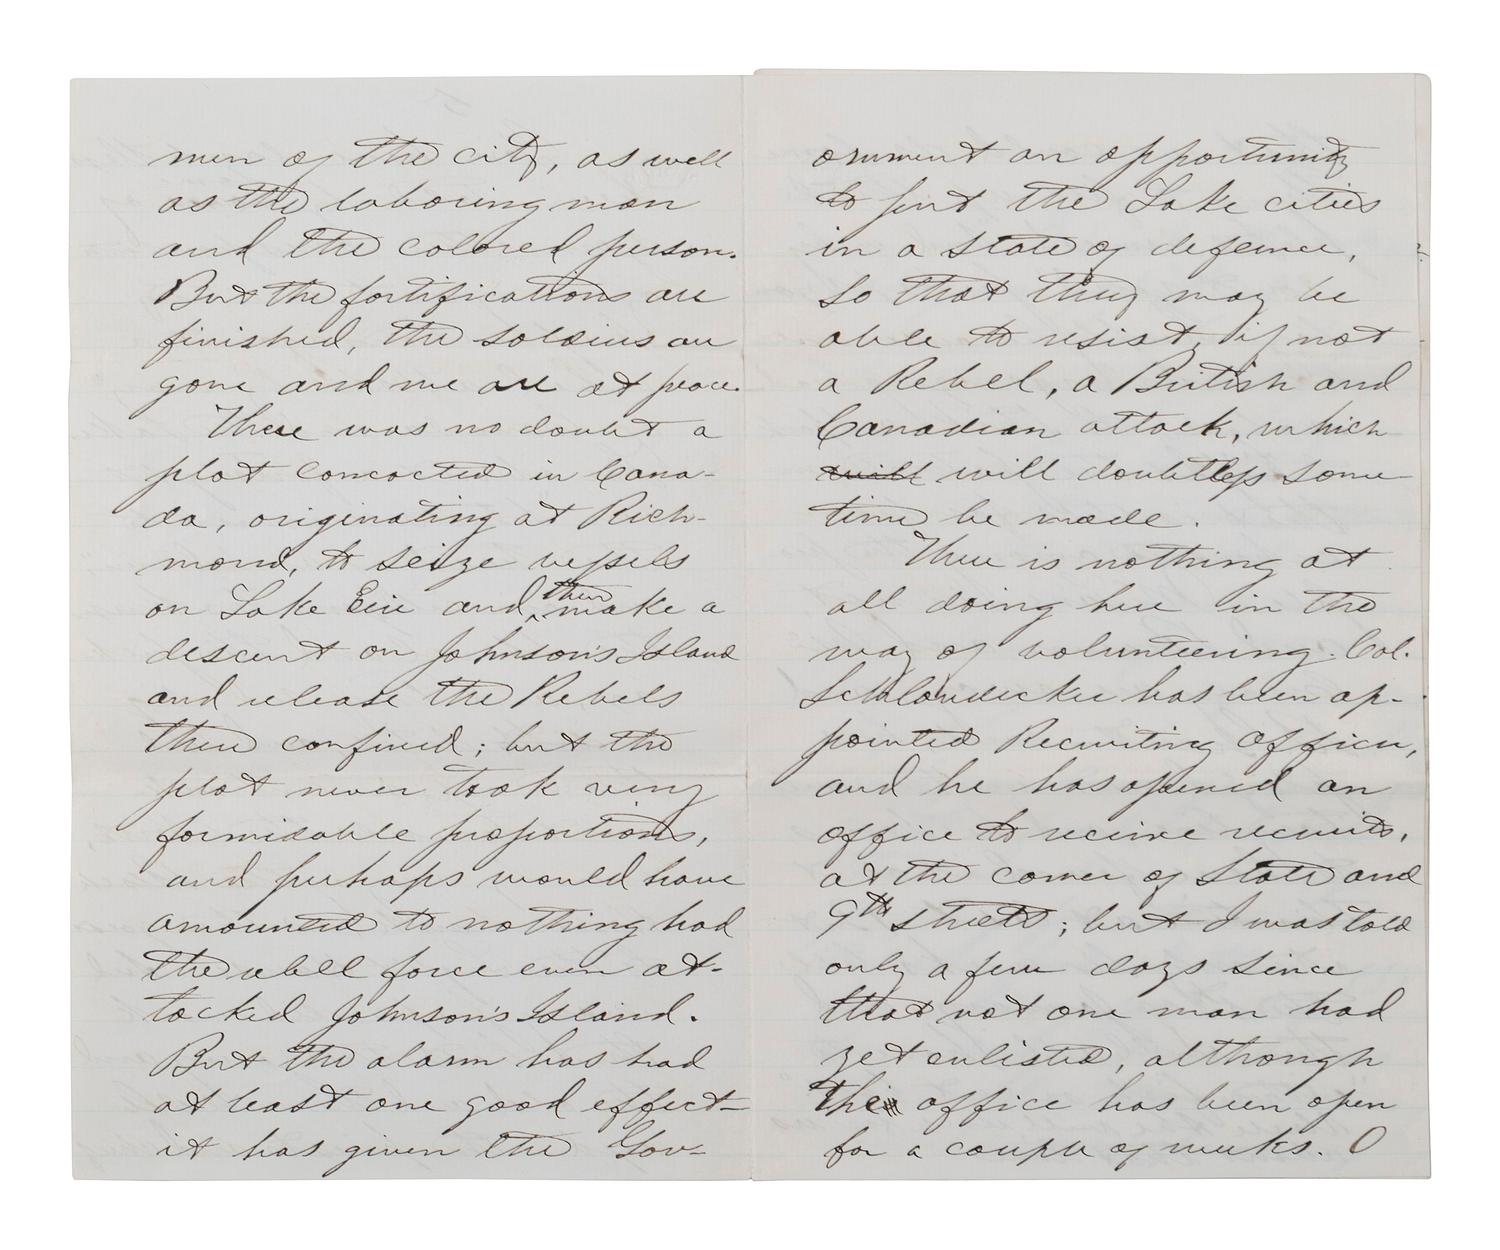 men of the city, as well
as the laboring man
and the colored person.
But the fortifications are
finished, the soldiers are
gone and we are at peace.
There was no doubt a
plot concocted in Cana-
da, originating at Rich-
mond, to seize vessels
on Lake Erie and then make a
descent on Johnson's Island
and release the Rebels
there confined; but the
plot never took very
formidable proportions,
and perhaps would have
amounted to nothing had
the rebel force even at-
tacked Johnson's Island.
But the alarm has had
at least one good effect—
it has given the Gov-
ernment an opportunity
to put the Lake cities
in a state of defence,
so that they may be
able to resist, if not
a Rebel, a British and
Canadian attack, which
will doubtless some
time be made.
There is nothing at
all doing here in the
way of volunteering. Col.
Schlaudecker has been ap-
pointed Recruiting Officer,
and he has opened an
office to receive recruits,
at the corner of State and
9th streets; but I was told
only a few days since
that not one man had
yet enlisted, although
the office has been open
for a couple of weeks. O